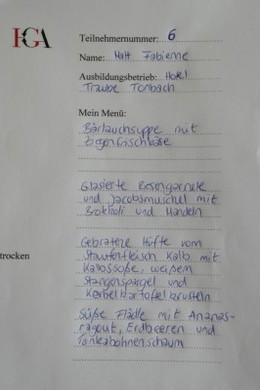 HGA
Teilnehmernummer: 6
Name: Matt Fabienne
Ausbildungsbetrieb: Hotel
Traube Tonbach
Mein Menü:
Bärlauchsuppe mit
Ziegenfrischkäse
Glasierte Riesengarnele
und Jacobsmuschel mit
Brokkoli und Mandeln
Gebratene Hüfte vom
Staufenfleisch Kalb mit
Kalbssoße, weißem
Stangenspargel und
Kerbelkartoffelkrusteln
trocken
Süße Flädle mit Ananas-
ragout, Erdbeeren und
Tonkabohnenschaum